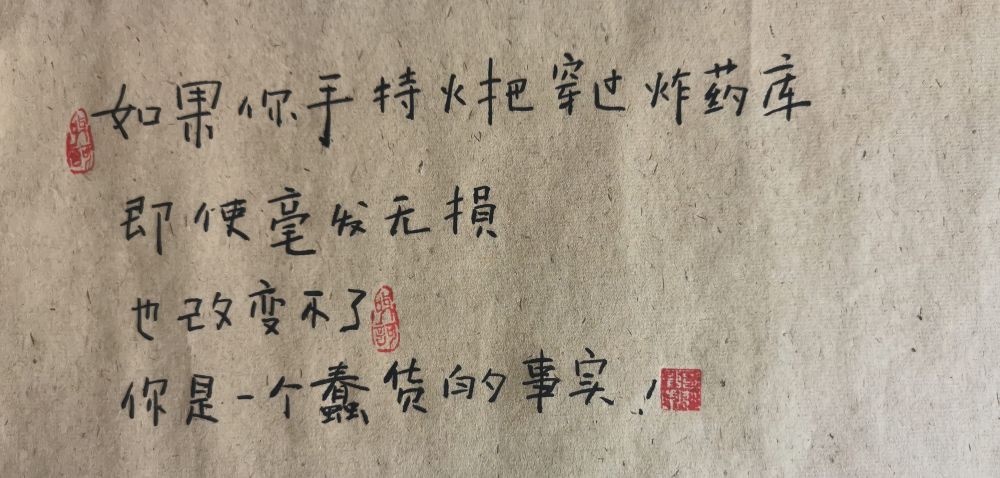 如果你手特火把穿过炸药库
即使毫发无损
也改变不了
你是一个蠢货的事实！